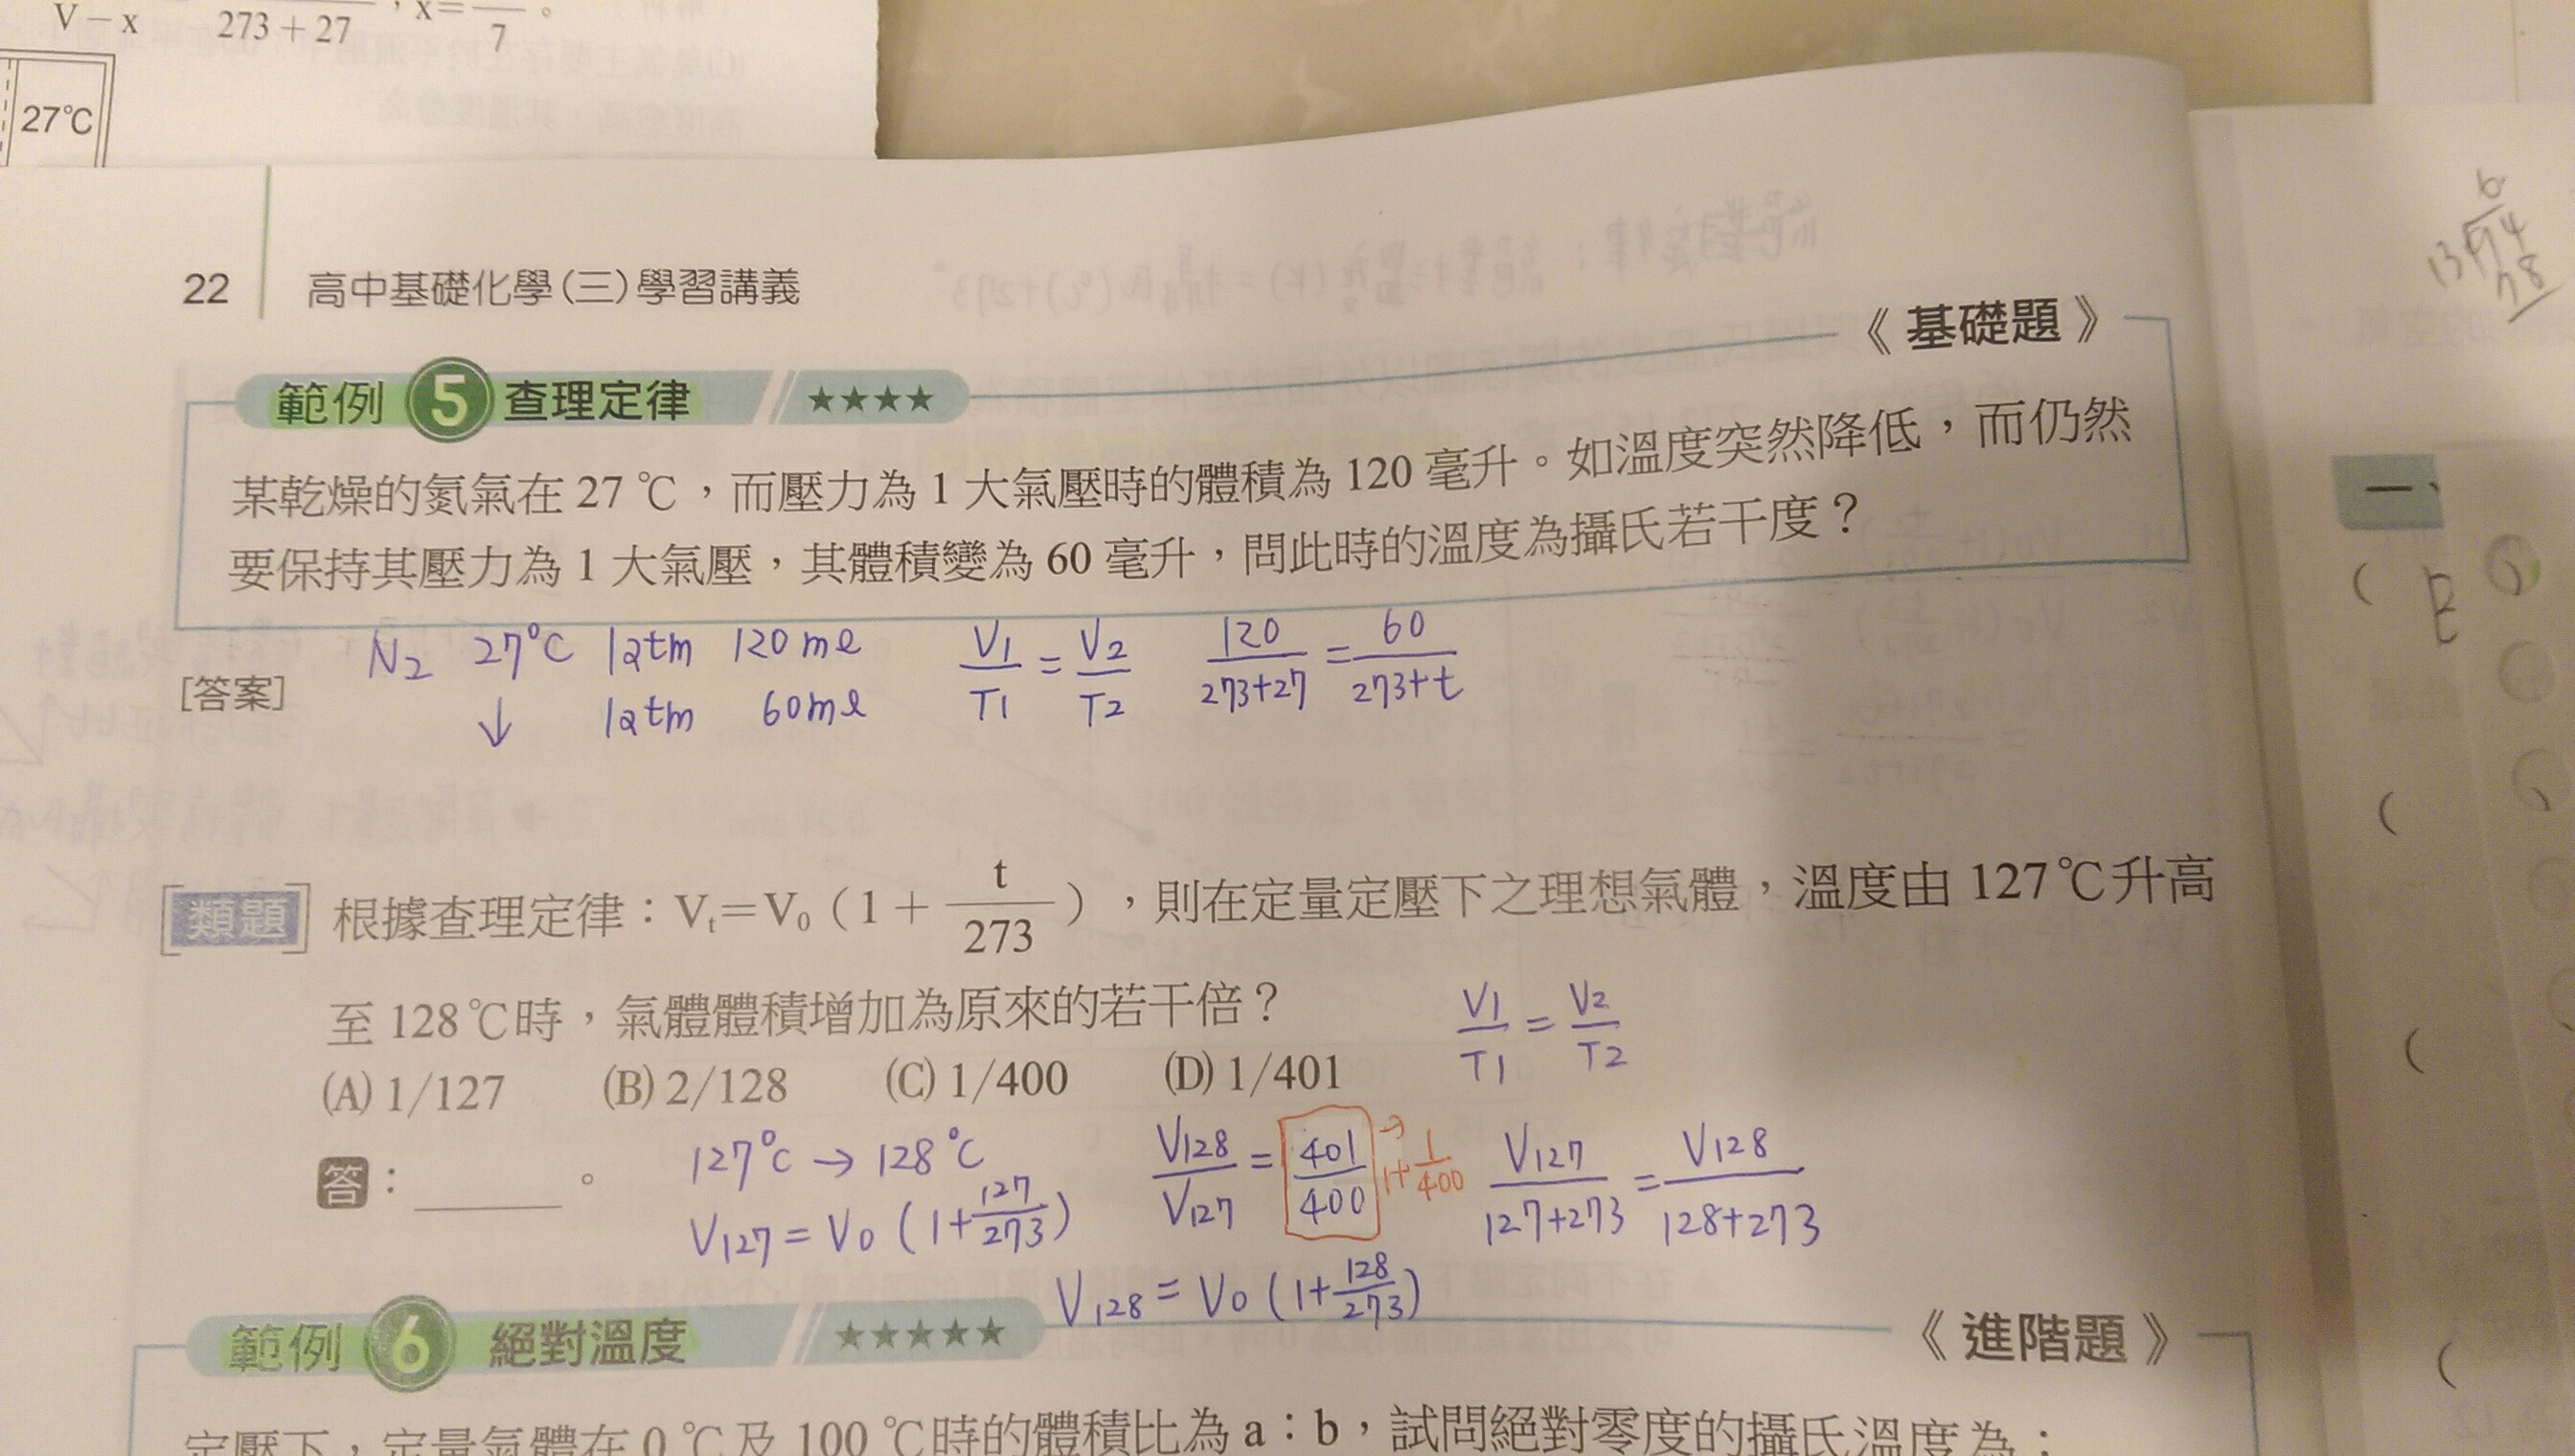 V－x 273＋27 ，x＝ 7 。
27℃
22 高中基礎化學(三)學習講義
《基礎題》
範例 5 查理定律 ★★★★
某乾燥的氮氣在 27 ℃，而壓力為 1 大氣壓時的體積為 120 毫升。如溫度突然降低，而仍然
要保持其壓力為 1 大氣壓，其體積變為 60 毫升，問此時的溫度為攝氏若干度？
N2 27°C 1atm 120ml V1/T1 = V2/T2 120/273+27 = 60/273+t
[答案] ↓ 1atm 60ml
[類題] 根據查理定律：Vt＝V0（1＋t/273），則在定量定壓下之理想氣體，溫度由 127℃升高
至 128℃時，氣體體積增加為原來的若干倍？
V1/T1 = V2/T2
(A) 1/127 (B) 2/128 (C) 1/400 (D) 1/401
答：______。
127°C → 128°C V128/V127 = 401/400 → 1+1/400 V127/127+273 = V128/128+273
V127 = V0 (1+127/273)
V128 = V0 (1+128/273)
範例 6 絕對溫度 ★★★★★ 《進階題》
定壓下，定量氣體在 0 ℃及 100 ℃時的體積比為 a：b，試問絕對零度的攝氏溫度為：
一、
( E
(
(
(